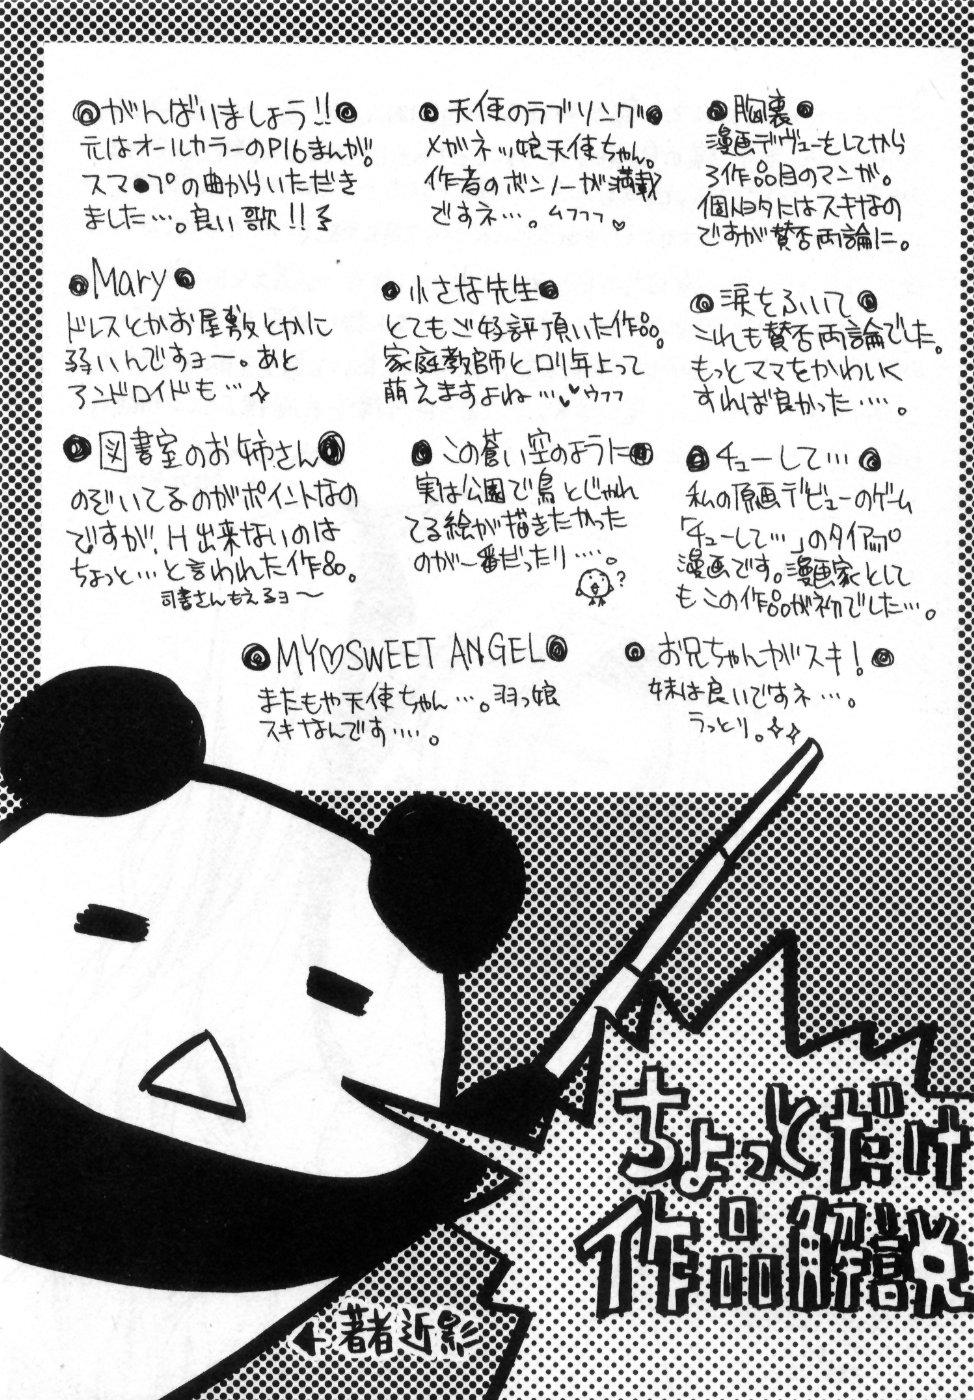 ◎がんばりましょう!!◎
元はオールカラーのP16まんが。
スマ●プの曲からいただき
ました…。良い歌!!
●天使のラブソング●
メガネッ娘天使ちゃん。
作者のボンノーが満載
ですネ…。ムフフフ♥
●胸裏●
漫画デヴューをしてから
3作品目のマンガ。
個人的にはスキなの
ですが賛否両論に。
●Mary●
ドレスとかお屋敷とかに
弱いんですョー。あと
アンドロイドも…☆
●小さな先生●
とてもご好評頂いた作品。
家庭教師とロリ年上って
萌えますよね…♥ウフフ
●涙をふいて●
これも賛否両論でした。
もっとママをかわいく
すれば良かった…‥。
●図書室のお姉さん●
のぞいてるのがポイントなの
ですが、H出来ないのは
ちょっと…と言われた作品。
司書さんもえるョ〜
●この蒼い空のように●
実は公園で鳥とじゃれ
てる絵が描きたかった
のが一番だったり…‥。
?
●チューして…●
私の原画デビューのゲーム
「チューして…」のタイアップ
漫画です。漫画家として
もこの作品が初でした…。
●MY♡SWEET ANGEL●
またもや天使ちゃん…。羽っ娘
スキなんです…‥。
●お兄ちゃんがスキ!●
妹は良いですネ…。
うっとり。☆☆
ちょっとだけ
作品解説
←著者近影